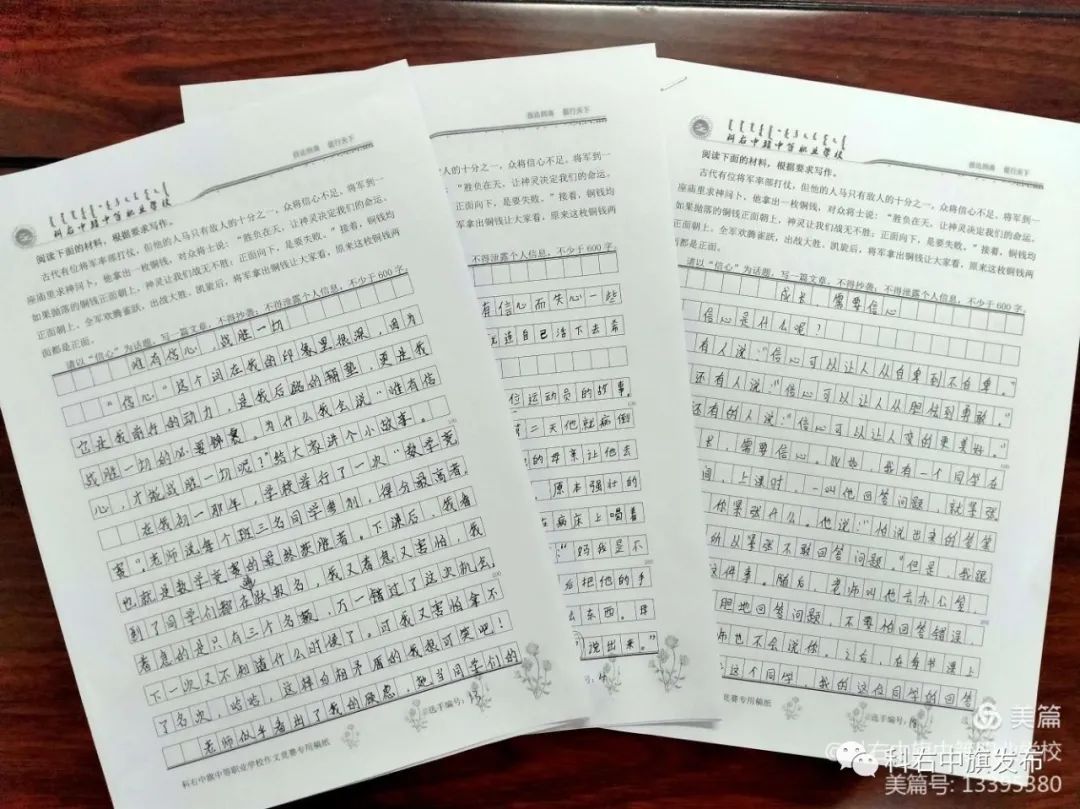 技达润南 能行天下
科右中旗中等职业学校
阅读下面的材料，根据要求写作。
古代有位将军率部打仗，但他的人马只有敌人的十分之一，众将信心不足，将军到一
座庙里求神问卜，他拿出一枚铜钱，对众将士说：“胜负在天，让神灵决定我们的命运。
如果抛落的铜钱正面朝上，神灵让我们战无不胜；正面向下，是要失败。”接着，铜钱均
正面朝上，全军欢腾雀跃，出战大胜。凯旋后，将军拿出铜钱让大家看，原来这枚铜钱两
面都是正面。
请以“信心”为话题，写一篇文章，不得抄袭；不得泄露个人信息，不少于600字。
唯有信心，战胜一切
“信心”这个词在我的印象里根深，因为
它是我前行的动力，是我后路的铺垫，更是我
战胜一切的必要锦囊。为什么我会说“唯有信
心，才能战胜一切呢？”给大家讲个小故事。
在我初一那年，学校举行了一次“数学竞
赛”。老师说每个班三名同学参列，得分最高者，
也就是数学竞赛的最终获胜者。下课后，我看
到了同学们都在踊跃报名，我又着急又害怕，我
着急的是只有三个名额，万一错过了这次机会，
下一次又不知道什么时候了。可我又害怕拿不
了名次，哈哈，这样自相矛盾的我很可笑吧！
老师似乎看出了我的顾虑，把当同学们的
科右中旗中等职业学校作文竞赛专用稿纸
选手编号：13
技达润南 能行天下
人的十分之一，众将信心不足，将军到一
“胜负在天，让神灵决定我们的命运。
正面向下，是要失败。”接着，铜钱均
拿出铜钱让大家看，原来这枚铜钱两
不得泄露个人信息，不少于600字。
有信心而失心一些
无法自己活下去希
位运动员的故事。
第二天他就病倒
的母亲让他去
，原本强壮的
在病床上喝着
：“妈我是不
后把他的手
么东西。母
说出来。”
技达润南 能行天下
科右中旗中等职业学校
阅读下面的材料，根据要求写作。
古代有位将军率部打仗，但他的人马只有敌人的十分之一，众将信心不足，将军到一
座庙里求神问卜，他拿出一枚铜钱，对众将士说：“胜负在天，让神灵决定我们的命运，
如果抛落的铜钱正面朝上，神灵让我们战无不胜；正面向下，是要失败。”接着，铜钱均
正面朝上，全军欢腾雀跃，出战大胜。凯旋后，将军拿出铜钱让大家看，原来这枚铜钱两
面都是正面。
请以“信心”为话题，写一篇文章，不得抄袭；不得泄露个人信息，不少于600字。
成长，需要信心
信心是什么呢？
有人说：“信心可以让人从自卑到不自卑。”
还有人说：“信心可以让人从胆怯到勇敢。”
还有的人说：“信心可以让人变的更美好。”
长，需要信心。比如，我有一个同学在
间，上课时，一叫他回答问题，就紧张
你紧张什么。他说：“怕说出来的答案
所以紧张不敢回答问题。”但是，我跟
这件事。随后，老师叫他去办公室，
胆地回答问题，不要怕回答错误，
师也不会说你。之后，在每节课上
这个同学，我的这位同学的回答
竞赛专用稿纸
选手编号：18
美篇
科右中旗发布
美篇号：13395380